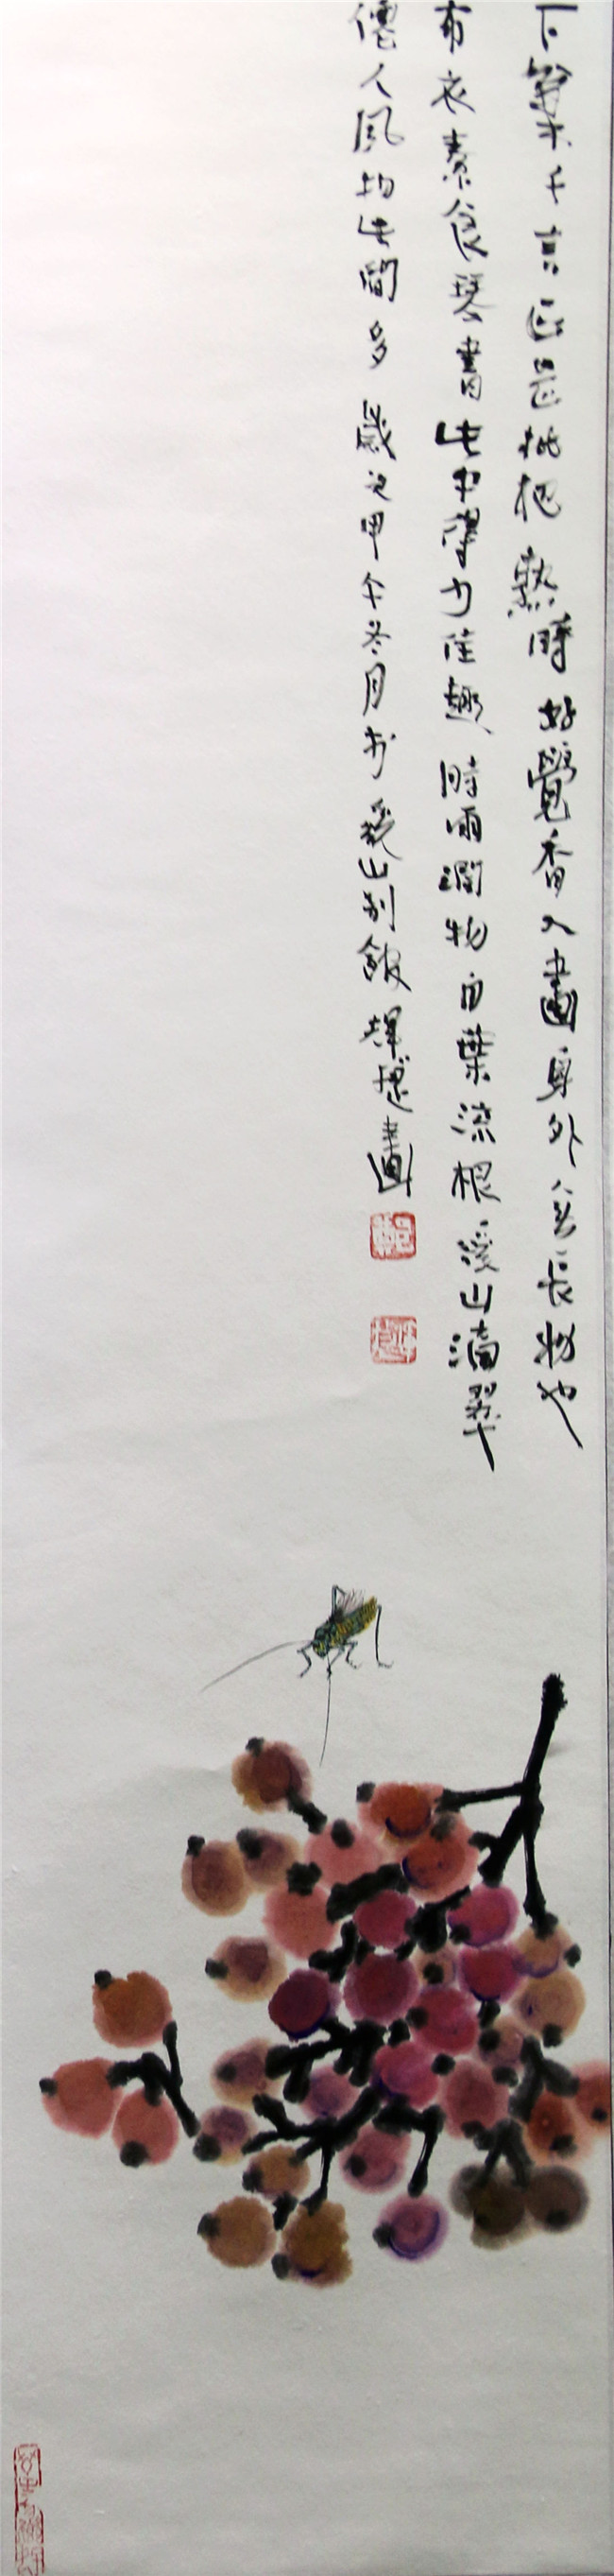 下笔千言正是枇杷熟時好覺香入畫身外無長物也
布衣素食琴書此中得力佳趣時雨潤物自葉流根溪山滴翠
僊人風物此間多 歲次甲午冬月於 山別館 畫